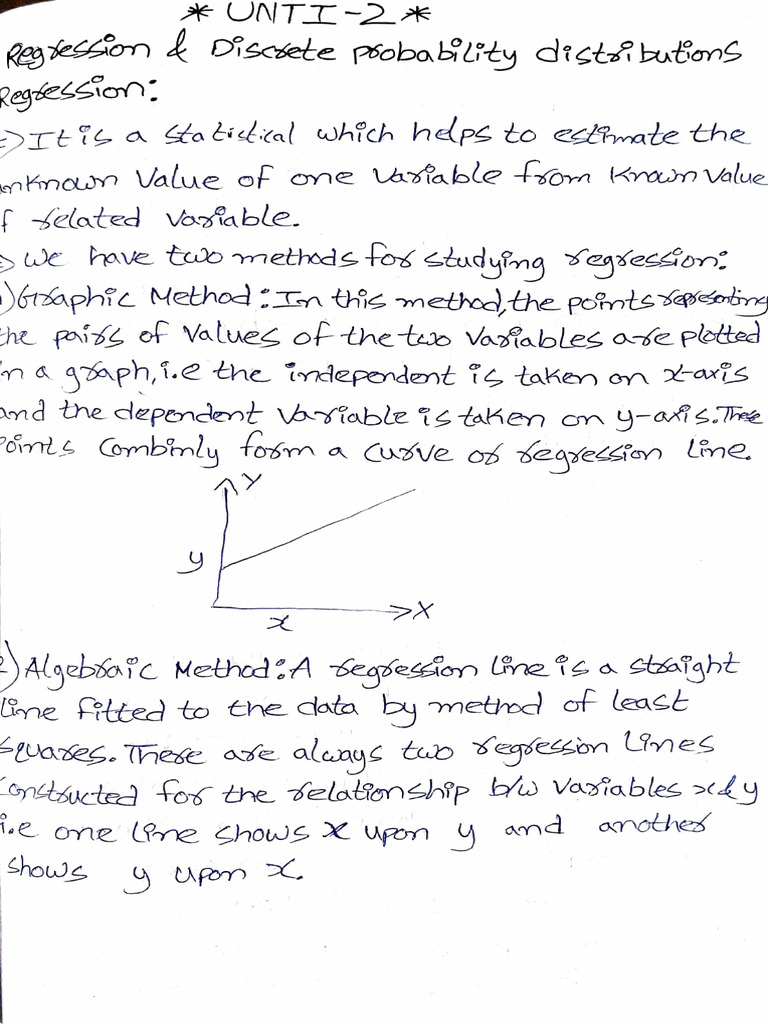 * UNTI-2 *
Regression & Discrete probability distributions
Regression:
=> It is a statistical which helps to estimate the
unknown value of one variable from known value
of related variable.
=> We have two methods for studying regression:
1) Graphic Method: In this method, the points representing
the pairs of values of the two variables are plotted
in a graph, i.e the independent is taken on x-axis
and the dependent variable is taken on y-axis. These
points combinly form a curve of regression line.
Y
y
X
x
2) Algebraic Method: A regression line is a straight
line fitted to the data by method of least
squares. There are always two regression lines
constructed for the relationship b/w variables x & y
i.e one line shows x upon y and another
shows y upon x.